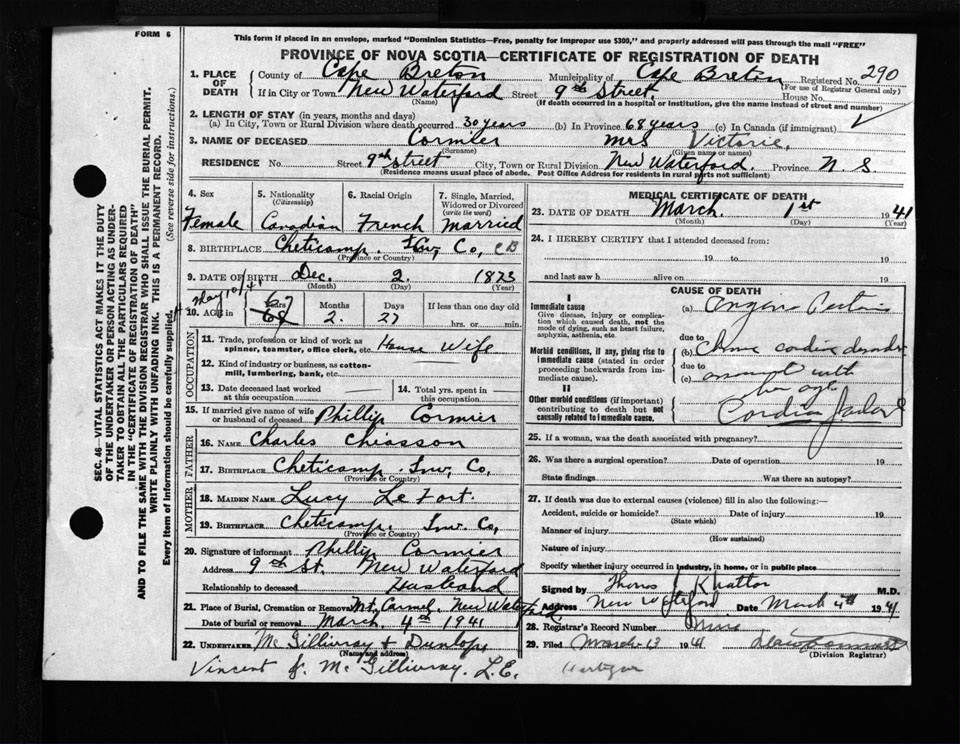 FORM 6
This form if placed in an envelope, marked "Dominion Statistics—Free, penalty for improper use $300," and properly addressed will pass through the mail "FREE"
PROVINCE OF NOVA SCOTIA—CERTIFICATE OF REGISTRATION OF DEATH
SEC. 46—VITAL STATISTICS ACT MAKES IT THE DUTY
OF THE UNDERTAKER OR PERSON ACTING AS UNDER-
TAKER TO OBTAIN ALL THE PARTICULARS REQUIRED
IN THE "CERTIFICATE OF REGISTRATION OF DEATH"
AND TO FILE THE SAME WITH THE DIVISION REGISTRAR WHO SHALL ISSUE THE BURIAL PERMIT.
WRITE PLAINLY WITH UNFADING INK. THIS IS A PERMANENT RECORD.
Every item of information should be carefully supplied.
(See reverse side for instructions.)
1. PLACE OF DEATH
County of Cape Breton Municipality of Cape Breton Registered No. 290
(For use of Registrar General only)
If in City or Town New Waterford Street 9th Street. House No.
(Name) (If death occurred in a hospital or institution, give the name instead of street and number)
2. LENGTH OF STAY (in years, months and days)
(a) In City, Town or Rural Division where death occurred 30 years (b) In Province 68 years (c) In Canada (if immigrant)
3. NAME OF DECEASED Cormier Mrs Victorie,
(Surname) (Given name or names)
RESIDENCE No. Street 9th Street City, Town or Rural Division New Waterford. Province N. S.
(Residence means usual place of abode. Post Office Address for residents in rural parts not sufficient)
4. Sex 5. Nationality (Citizenship) 6. Racial Origin 7. Single, Married, Widowed or Divorced (write the word)
Female Canadian French Married
8. BIRTHPLACE Cheticamp. Inv, Co, CB
(Province or Country)
9. DATE OF BIRTH Dec. 2. 1873
(Month) (Day) (Year)
10. AGE in Years Months Days If less than one day old
68 67 2. 27 hrs. or min.
OCCUPATION
11. Trade, profession or kind of work as spinner, teamster, office clerk, etc. House Wife
12. Kind of industry or business, as cotton-mill, lumbering, bank, etc.
13. Date deceased last worked at this occupation
14. Total yrs. spent in this occupation.
15. If married give name of wife or husband of deceased Phillip Cormier
FATHER
16. NAME Charles Chiasson
17. BIRTHPLACE Cheticamp. Inv, Co,
(Province or Country)
MOTHER
18. MAIDEN NAME Lucy Le Fort
19. BIRTHPLACE Cheticamp. Inv. Co,
(Province or Country)
20. Signature of informant Phillip Cormier
Address 9th St. New Waterford
Relationship to deceased Husband
21. Place of Burial, Cremation or Removal Mt. Carmel. New Waterford
Date of burial or removal March, 4th 1941
22. UNDERTAKER McGillivray & Dunlop
(Name and address)
Vincent J. McGillivray. L.E.
MEDICAL CERTIFICATE OF DEATH
23. DATE OF DEATH March. 1st 1941
(Month) (Day) (Year)
24. I HEREBY CERTIFY that I attended deceased from:
19 to 19
and last saw h alive on 19
CAUSE OF DEATH
I
Immediate cause
Give disease, injury or complication which caused death, not the mode of dying, such as heart failure, asphyxia, asthenia, etc.
(a) Angina
due to
Morbid conditions, if any, giving rise to immediate cause (stated in order proceeding backwards from immediate cause).
(b)
due to
(c)
II
Other morbid conditions (if important) contributing to death but not causally related to immediate cause.
25. If a woman, was the death associated with pregnancy?
26. Was there a surgical operation? Date of operation 19
State findings Was there an autopsy?
27. If death was due to external causes (violence) fill in also the following:—
Accident, suicide or homicide? Date of injury 19
(State which)
Manner of injury
(How sustained)
Nature of injury
Specify whether injury occurred in industry, in home, or in public place
Signed by M.D.
Address New Waterford Date March 4th 1941
28. Registrar's Record Number
29. Filed March 13 1941
(Division Registrar)